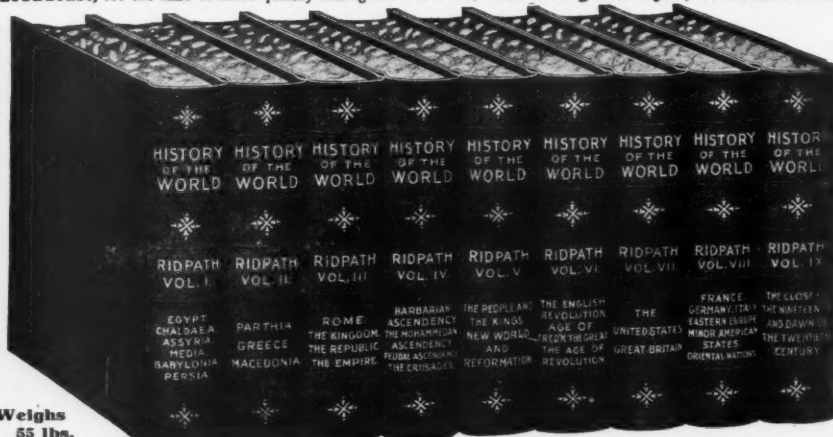 HISTORY
OF THE
WORLD
RIDPATH
VOL. I.
EGYPT
CHALDAEA
ASSYRIA
MEDIA
BABYLONIA
PERSIA
HISTORY
OF THE
WORLD
RIDPATH
VOL. II.
PARTHIA
GREECE
MACEDONIA
HISTORY
OF THE
WORLD
RIDPATH
VOL. III.
ROME
THE KINGDOM
THE REPUBLIC
THE EMPIRE
HISTORY
OF THE
WORLD
RIDPATH
VOL. IV.
BARBARIAN
ASCENDENCY
THE MOHAMMEDAN
ASCENDENCY
FEUDAL ASCENDENCY
THE CRUSADES
HISTORY
OF THE
WORLD
RIDPATH
VOL. V
THE PEOPLE AND
THE KINGS
NEW WORLD
AND
REFORMATION
HISTORY
OF THE
WORLD
RIDPATH
VOL. VI.
THE ENGLISH
REVOLUTION
AGE OF
FRED'K THE GREAT
THE AGE OF
REVOLUTION
HISTORY
OF THE
WORLD
RIDPATH
VOL. VII.
THE
UNITED STATES
GREAT BRITAIN
HISTORY
OF THE
WORLD
RIDPATH
VOL. VIII.
FRANCE
GERMANY, ITALY
EASTERN EUROPE
MINOR AMERICAN
STATES
ORIENTAL NATIONS
HISTOR
OF THE
WORL
RIDPATH
VOL. IX
THE CLOSE
THE NINETEEN
AND DAWN OF
THE TWENTIETH
CENTURY
Weighs
55 lbs.